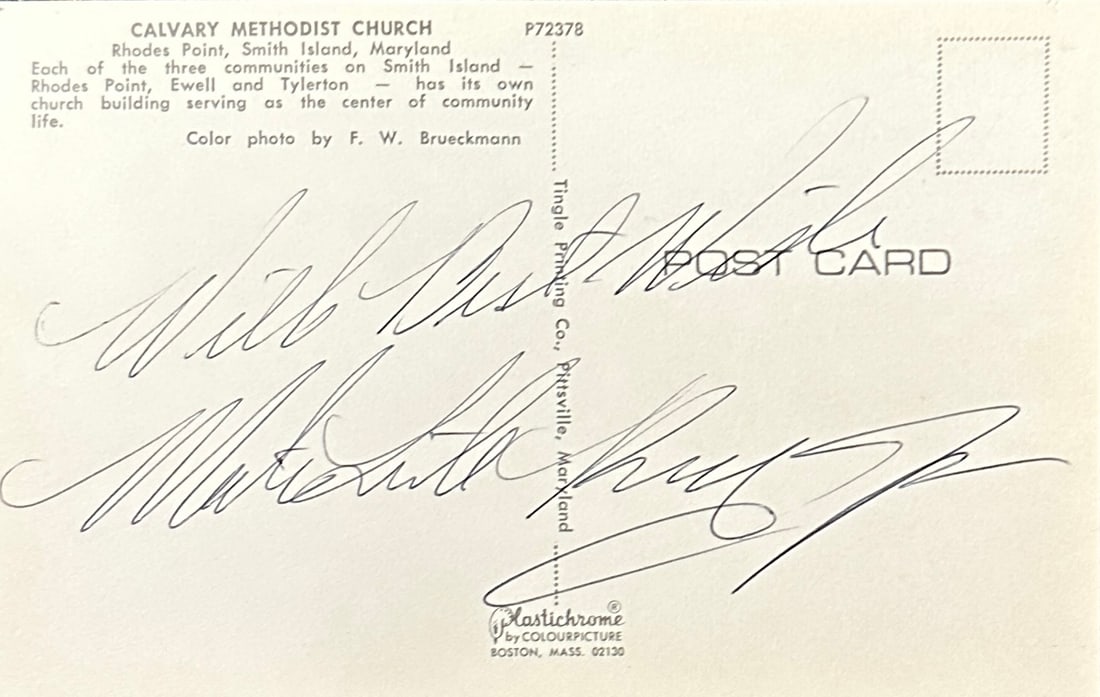 CALVARY METHODIST CHURCH
Rhodes Point, Smith Island, Maryland
Each of the three communities on Smith Island —
Rhodes Point, Ewell and Tylerton — has its own
church building serving as the center of community
life.
Color photo by F. W. Brueckmann
P72378
Tingle Printing Co., Pittsville, Maryland
POST CARD
With Best Wishes
Martin Luther King Jr
Plastichrome®
by COLOURPICTURE
BOSTON, MASS. 02130